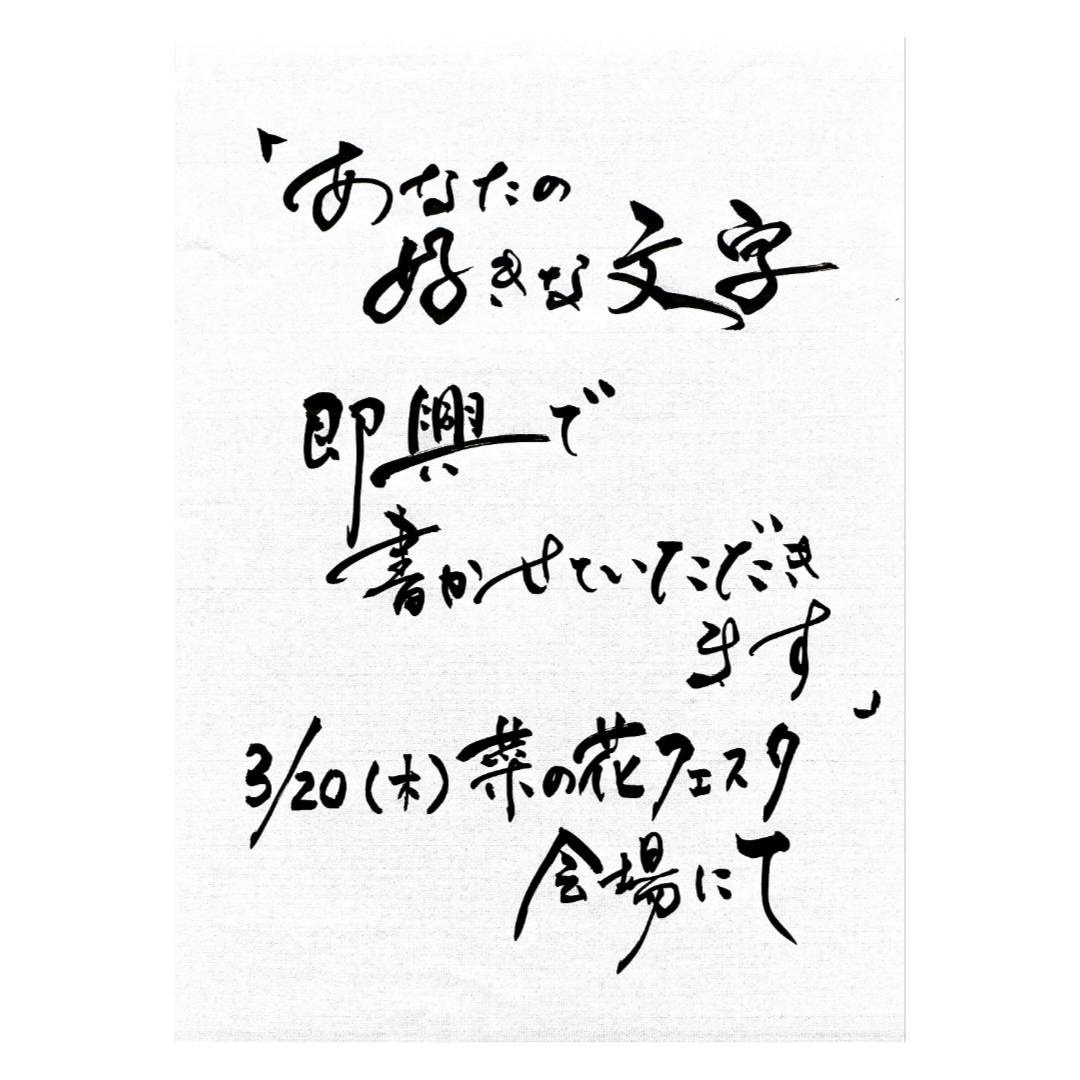 「あなたの
好きな文字
即興で
書かせていただき
ます」
3/20(木)菜の花フェスタ
会場にて